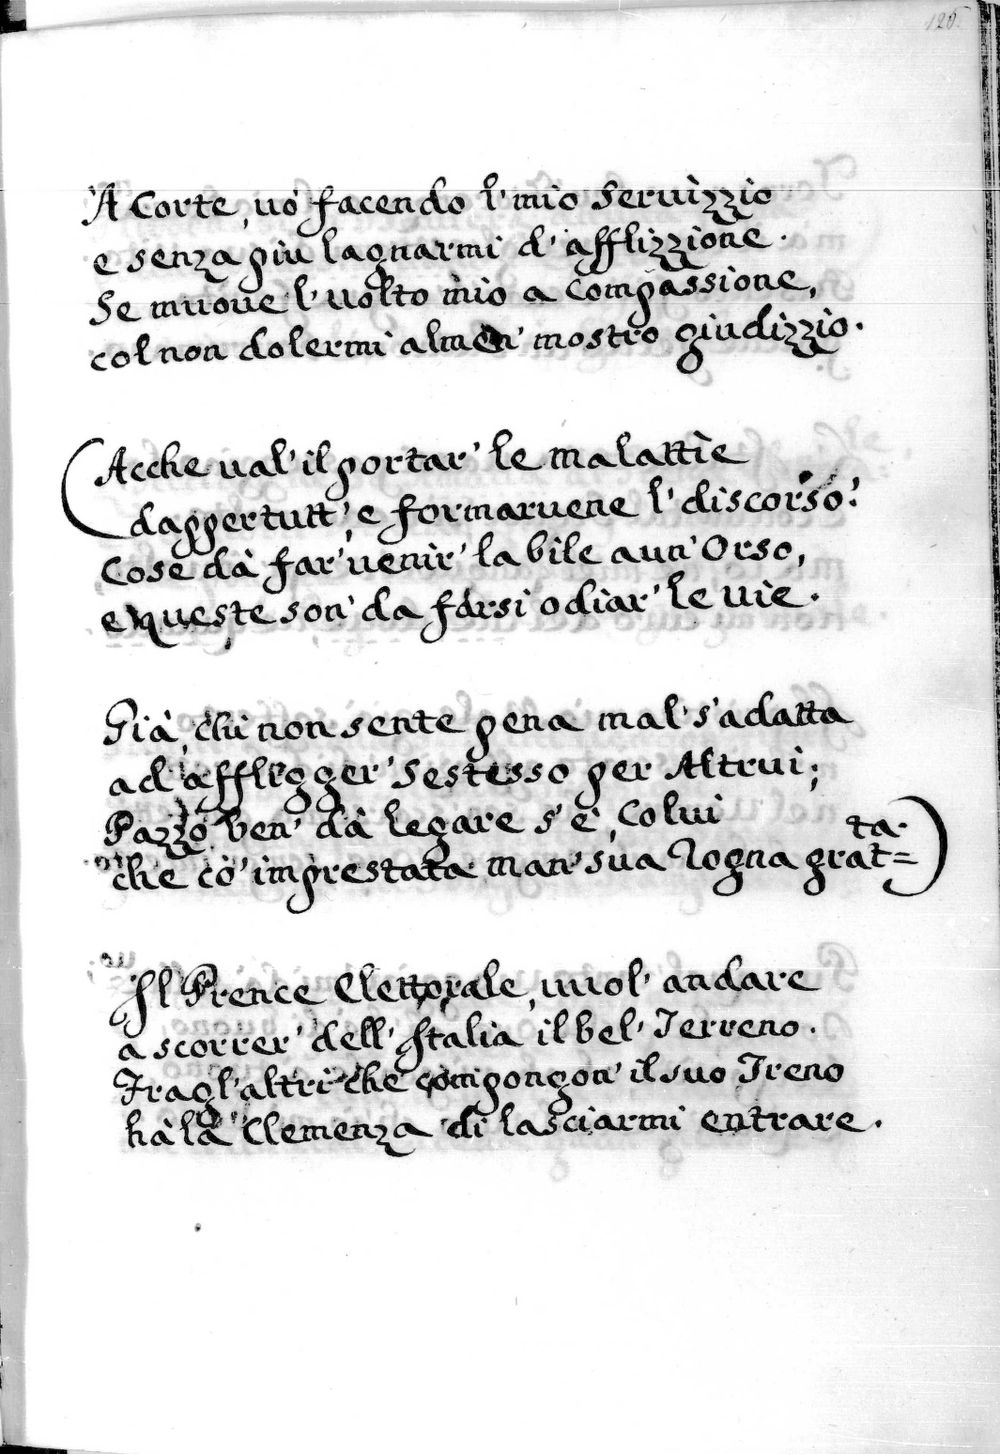 126.
À Corte, uò facendo l' mio Seruizzio
e senza più lagnarmi d' afflizzione.
Se muoue l' uolto mio a Compassione,
col non dolermi almen' mostro giudizzio.
(Acche ual' il portar' le malattie
dappertutt', e formaruene l' discorso?
Cose dà far' uenir' la bile a un' Orso,
e queste son' da farsi odiar' le uie.
Già, chi non sente pena mal' s'adatta
ad affligger' Sestesso per Altrui;
Pazzo ben' dà legare s' è, Colui
che cò' imprestata man' sua Rogna grat=ta.)
Il Prence Elettorale, uuol' andare
a scorrer' dell' Italia il bel' Terreno.
Fra gl' altri che compongon' il suo Treno
hà la Clemenza di lasciarmi entrare.